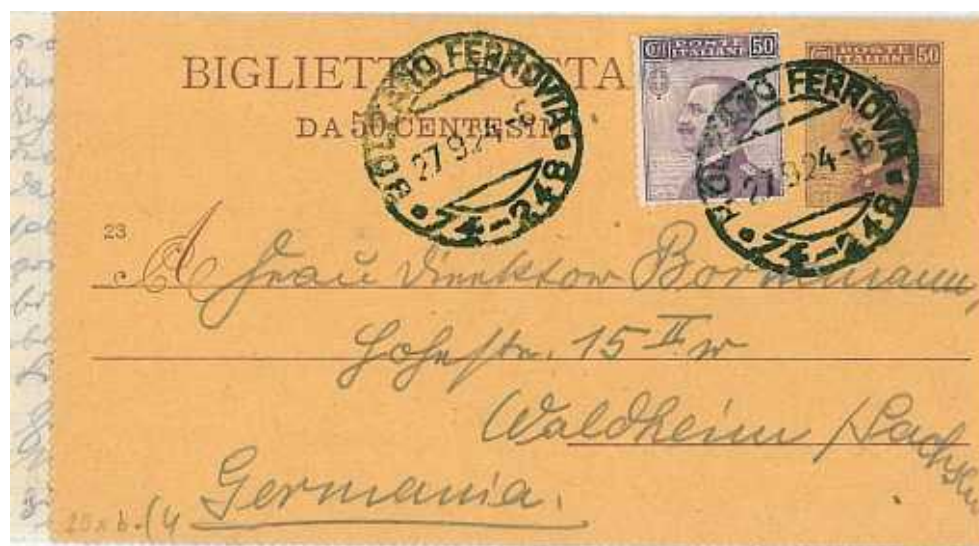 BIGLIETTO POSTA
DA 50 CENTESIMI
POSTE ITALIANE 50
POSTE ITALIANE 50
BOLZANO FERROVIA
27.9.24-6
74-248
BOLZANO FERROVIA
27.9.24-6
74-248
23
A Frau Direktor Bormann,
Hohestr. 15 II r
Waldheim / Sachsen
Germania.